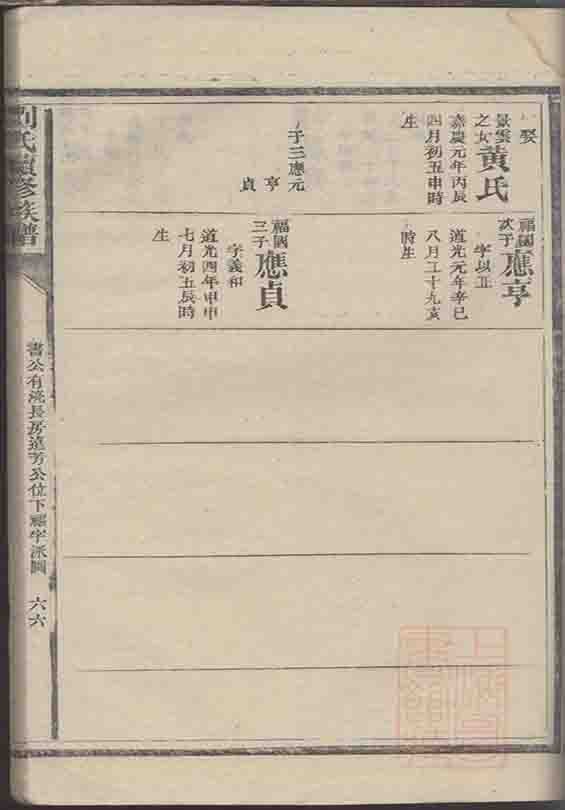 娶
景雲
之女
黃氏
嘉慶元年丙辰
四月初五申時
生
子三應元
亨
貞
福國
次子
應亨
字以正
道光元年辛巳
八月二十九亥
時生
福國
三子
應貞
字義和
道光四年甲申
七月初五辰時
生
劉氏續修族譜
書公有
長房達芳公位下福字派圖
六六